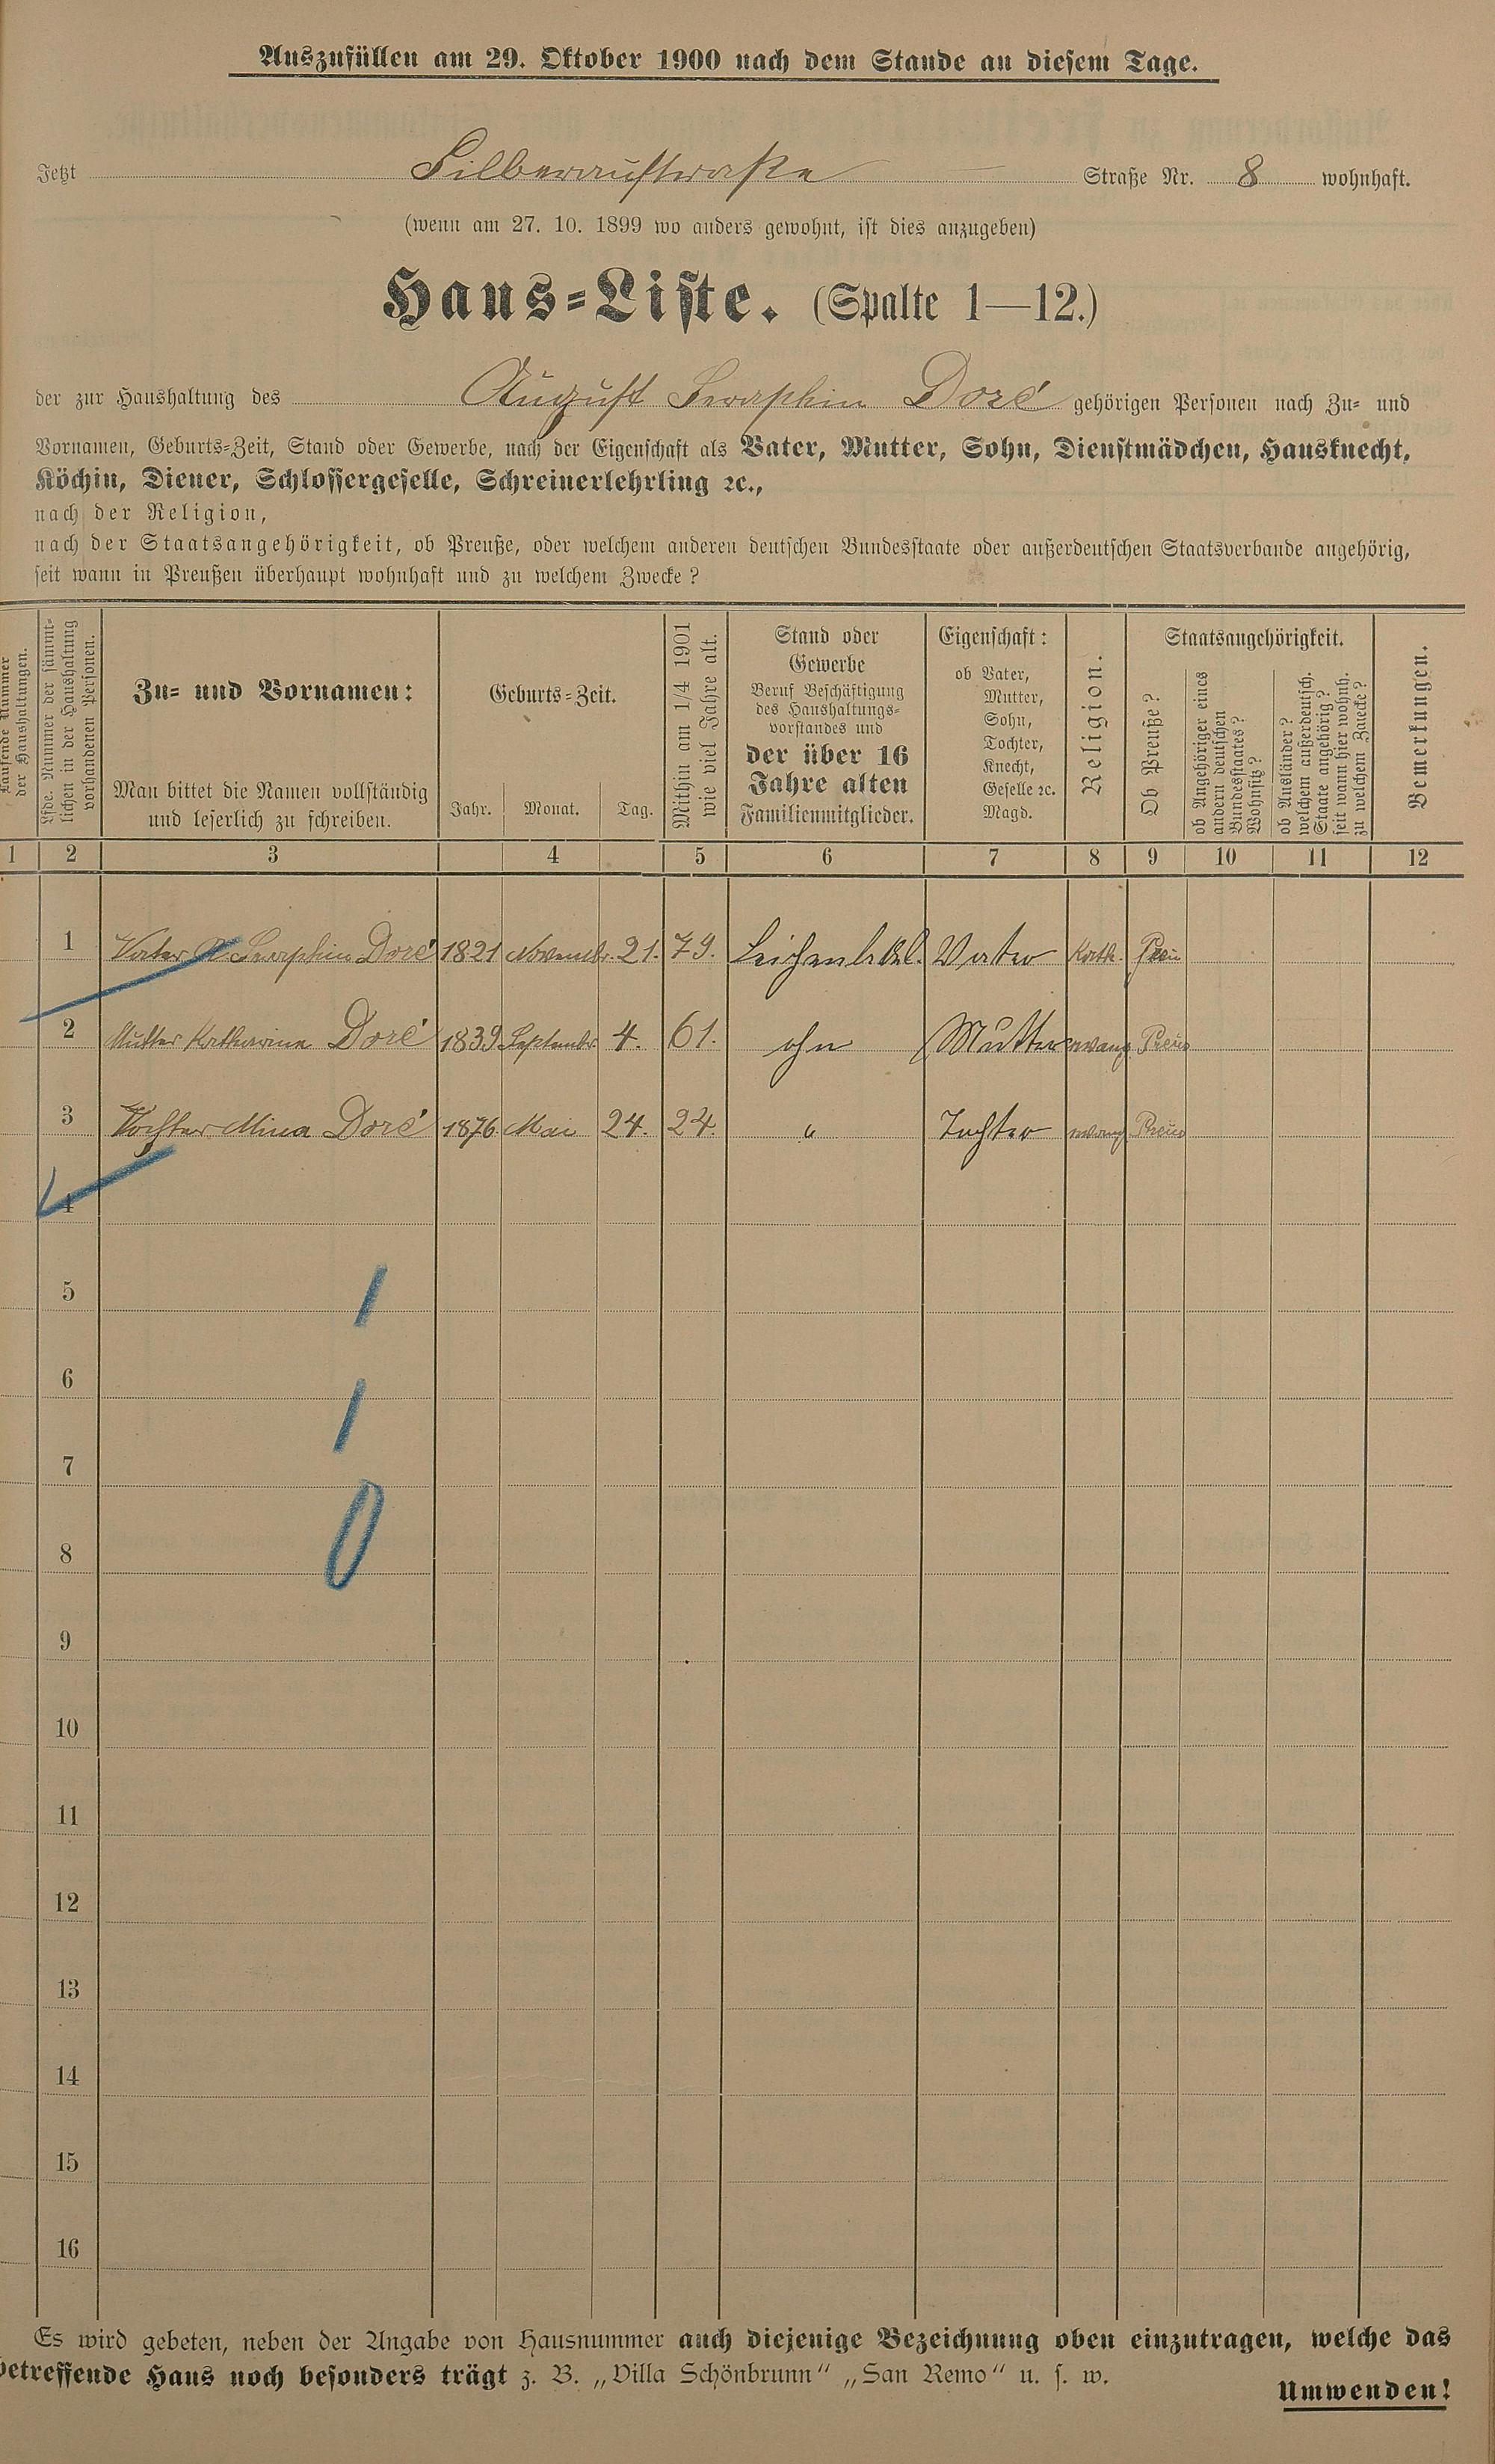 Auszufüllen am 29. Oktober 1900 nach dem Stande an diesem Tage.
Jetzt Silberaustraße Straße Nr. 8 wohnhaft.
(wenn am 27. 10. 1899 wo anders gewohnt, ist dies anzugeben)
Haus-Liste. (Spalte 1—12.)
der zur Haushaltung des August Seraphin Doré gehörigen Personen nach Zu- und
Vornamen, Geburts-Zeit, Stand oder Gewerbe, nach der Eigenschaft als Vater, Mutter, Sohn, Dienstmädchen, Hausknecht,
Köchin, Diener, Schlossergeselle, Schreinerlehrling ꝛc.,
nach der Religion,
nach der Staatsangehörigkeit, ob Preuße, oder welchem anderen deutschen Bundesstaate oder außerdeutschen Staatsverbande angehörig,
seit wann in Preußen überhaupt wohnhaft und zu welchem Zwecke?
Laufende Nummer
der Haushaltungen.
Lfde. Nummer der sämmt-
lichen in der Haushaltung
vorhandenen Personen.
Zu- und Vornamen:
Man bittet die Namen vollständig
und leserlich zu schreiben.
Geburts-Zeit.
Jahr. Monat. Tag.
Mithin am 1/4 1901
wie viel Jahre alt.
Stand oder
Gewerbe
Beruf Beschäftigung
des Haushaltungs-
vorstandes und
der über 16
Jahre alten
Familienmitglieder.
Eigenschaft:
ob Vater,
Mutter,
Sohn,
Tochter,
Knecht,
Geselle ꝛc.
Magd.
Religion.
Staatsangehörigkeit.
Ob Preuße?
ob Angehöriger eines
andern deutschen
Bundesstaates?
Wohnsitz?
ob Ausländer?
welchem außerdeutsch.
Staate angehörig?
seit wann hier wohnh.
zu welchem Zwecke?
Bemerkungen.
1 2 3 4 5 6 7 8 9 10 11 12
1 Vater A Seraphin Doré 1821 Novembr. 21. 79. Vater Kath. Preu
2 Mutter Katharina Doré 1839 Septembr. 4. 61. ohn Mutter evang Preus
3 Tochter Mina Doré 1876 Mai 24. 24. " Tochter evang Preus
4
5
6
7
8
9
10
11
12
13
14
15
16
Es wird gebeten, neben der Angabe von Hausnummer auch diejenige Bezeichnung oben einzutragen, welche das
betreffende Haus noch besonders trägt z. B. „Villa Schönbrunn“ „San Remo“ u. s. w.
Umwenden!